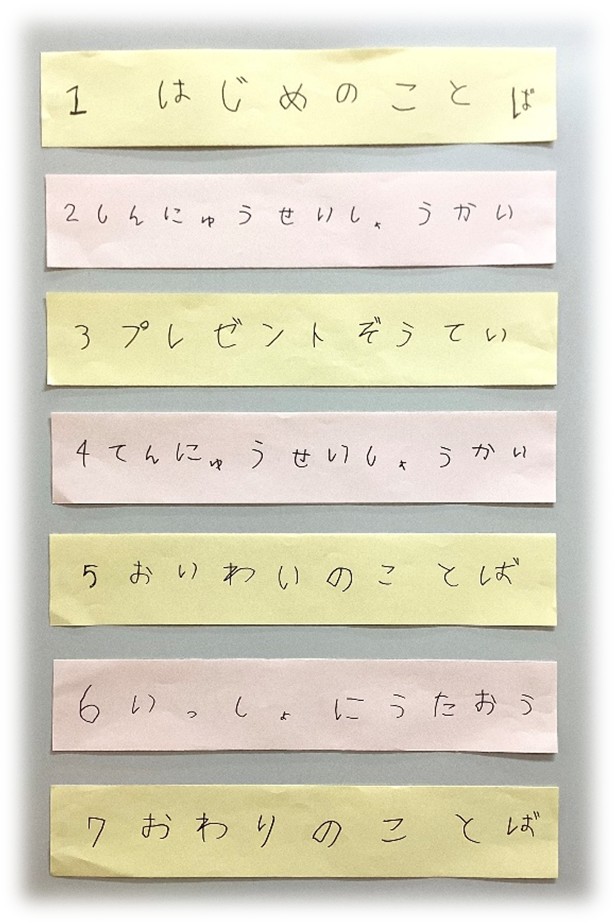 1 はじめのことば
2しんにゅうせいしょうかい
3プレゼントぞうてい
4てんにゅうせいしょうかい
5おいわいのことば
6いっしょにうたおう
7おわりのことば